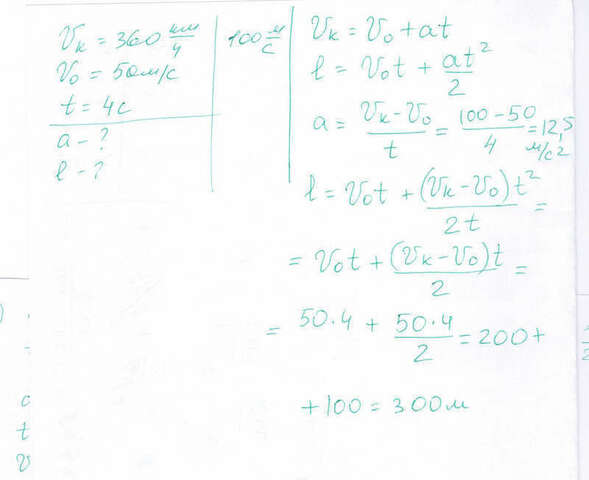 Vк = 360 км/ч
100 м/с
V₀ = 50м/с
t = 4с
a - ?
l - ?
Vк = V₀ + at
l = V₀t + at²/2
a = (Vк - V₀)/t = (100 - 50)/4 = 12,5 м/с²
l = V₀t + (Vк - V₀)t²/2t =
= V₀t + (Vк - V₀)t/2 =
= 50·4 + 50·4/2 = 200 +
+ 100 = 300м